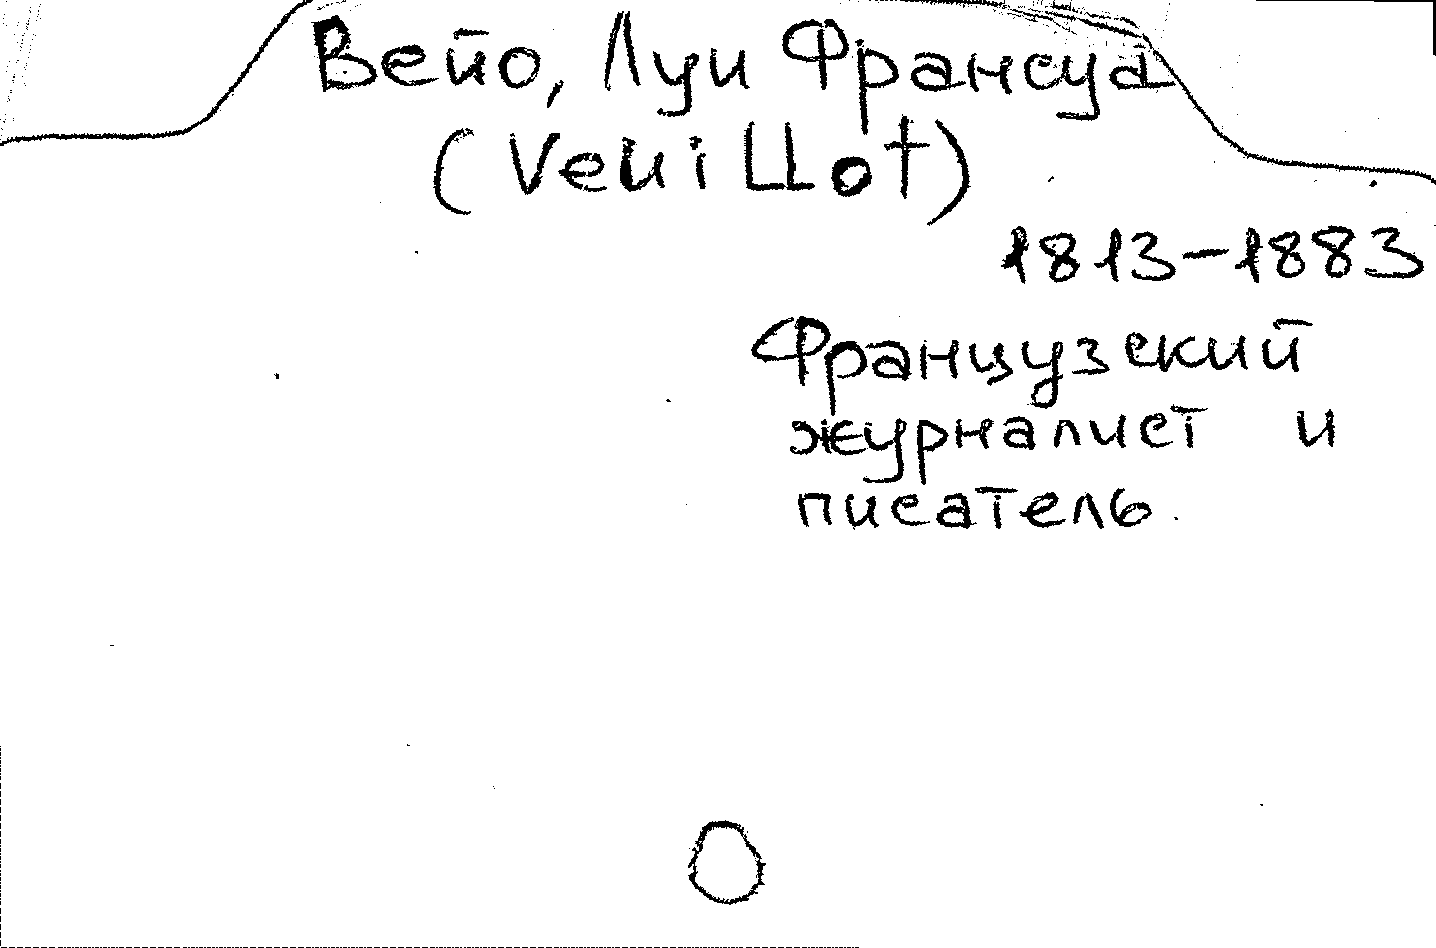 Вейо, Луи Франсуа
(Veuillot)
1813-1883
Французский
журналист и
писатель.